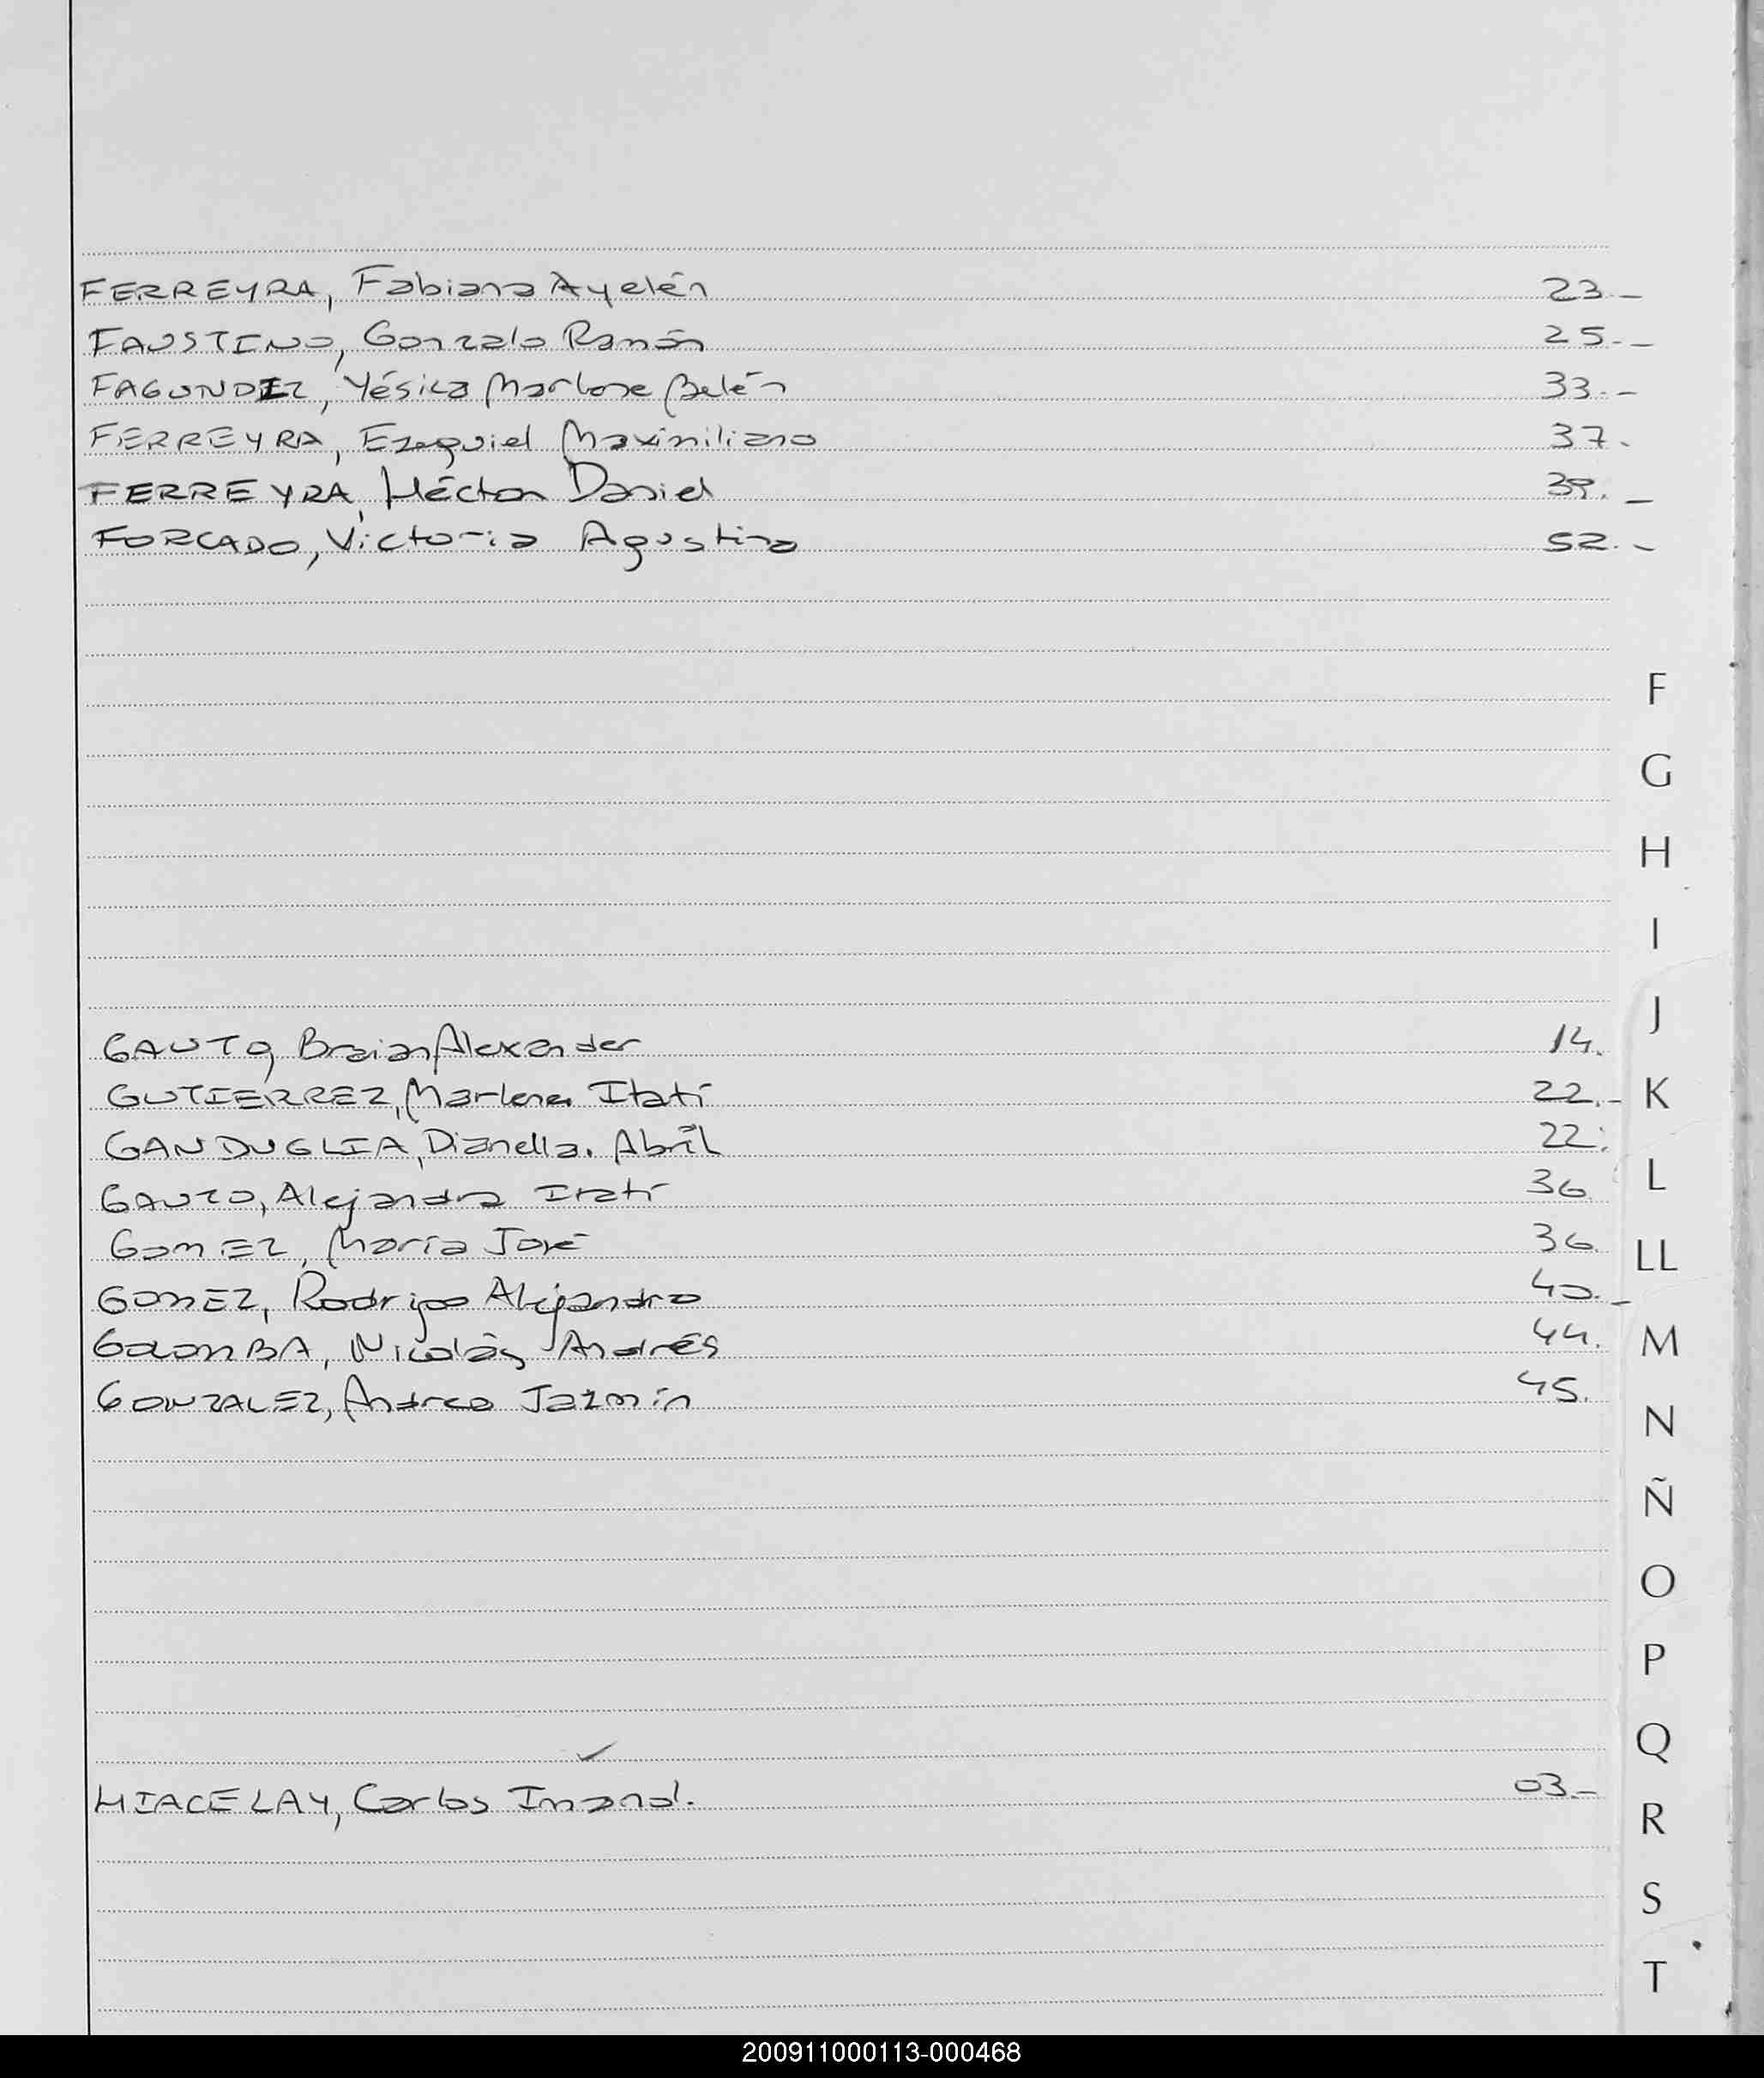 FERREYRA, Fabiana Ayelén 23.-
FAUSTINO, Gonzalo Ramón 25.-
FAGUNDEZ, Yésica Marlene Belén 33.-
FERREYRA, Ezequiel Maximiliano 37.
FERREYRA, Héctor Daniel 39.-
FORCADO, Victoria Agustina 52.-
F
G
H
I
J
GAUTO, Braian Alexander 14.
GUTIERREZ, Marlene Itatí 22.-
K
GANDUGLIA, Dianella. Abril 22.
GAUTO, Alejandra Itatí 36
L
GOMEZ, María José 36.
LL
GOMEZ, Rodrigo Alejandro 40.-
GOLOMBA, Nicolás Andrés 44.
M
GONZALEZ, Andrea Jazmín 45.
N
Ñ
O
P
Q
HIACELAY, Carlos Imanol. 03.-
R
S
T
200911000113-000468